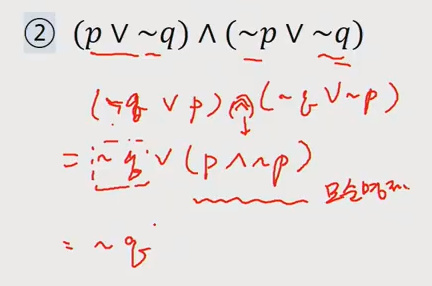 ② (p ∨ ~q) ∧ (~p ∨ ~q)
(~q ∨ p) ∧ (~q ∨ ~p)
= ~q ∨ (p ∧ ~p)
모순명제
= ~q